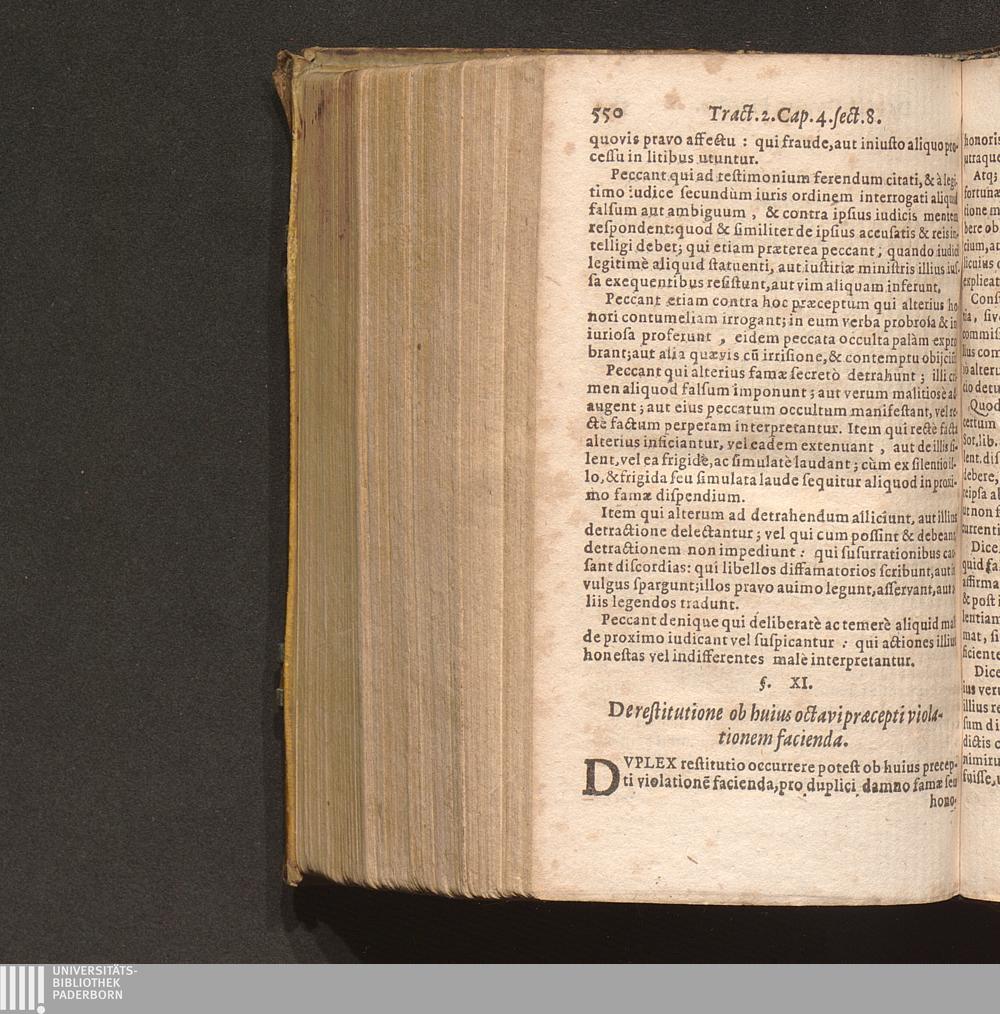 550 Tract.2.Cap.4.sect.8.
quovis pravo affectu : qui fraude, aut iniusto aliquo pro-
cessu in litibus utuntur.
Peccant qui ad testimonium ferendum citati, & à legi-
timo iudice secundùm iuris ordinem interrogati aliquid
falsum aut ambiguum , & contra ipsius iudicis mentem
respondent: quod & similiter de ipsius accusatis & reis in-
telligi debet; qui etiam præterea peccant, quando iudici
legitimè aliquid statuenti, aut iustitiæ ministris illius ius-
sa exequentibus resistunt, aut vim aliquam inferunt.
Peccant etiam contra hoc præceptum qui alterius ho
nori contumeliam irrogant; in eum verba probrosa & in
iuriosa proferunt , eidem peccata occulta palàm expro
brant; aut alia quævis cũ irrisione, & contemptu obijciũt
Peccant qui alterius famæ secretò detrahunt ; illi cri-
men aliquod falsum imponunt ; aut verum malitiosè ad
augent ; aut eius peccatum occultum manifestant, vel re-
ctè factum perperam interpretantur. Item qui rectè facta
alterius inficiantur, vel eadem extenuant , aut de illis si-
lent, vel ea frigidè, ac simulatè laudant ; cùm ex silentio il-
lo, & frigida seu simulata laude sequitur aliquod in proxi-
mo famæ dispendium.
Item qui alterum ad detrahendum alliciunt, aut illius
detractione delectantur ; vel qui cum possint & debeant
detractionem non impediunt : qui susurrationibus cau-
sant discordias: qui libellos diffamatorios scribunt, aut in
vulgus spargunt; illos pravo auimo legunt, asservant, aut a
liis legendos tradunt.
Peccant denique qui deliberatè ac temerè aliquid mali
de proximo iudicant vel suspicantur : qui actiones illius
honestas vel indifferentes malè interpretantur.
§. XI.
De restitutione ob huius octavi præcepti viola-
tionem facienda.
DVPLEX restitutio occurrere potest ob huius precep-
ti violationẽ facienda, pro duplici damno famæ seu
hono-
honoris
utraque
Atq;
fortunæ
tione m
bere ob
cium, au
licuius
explicat
Conf
tia, siv
commis
lius com
alteru
do detu
Quod
certum
Sot. lib.
lent. dis
debere,
reipsa a
ut non f
currenti
Dice
quid fa
affirma
& post i
lentiam
mat, si
ficiente
Dice
ius veru
illius re
sum di
dictis
nimiru
fuisse,
UNIVERSITÄTS-
BIBLIOTHEK
PADERBORN